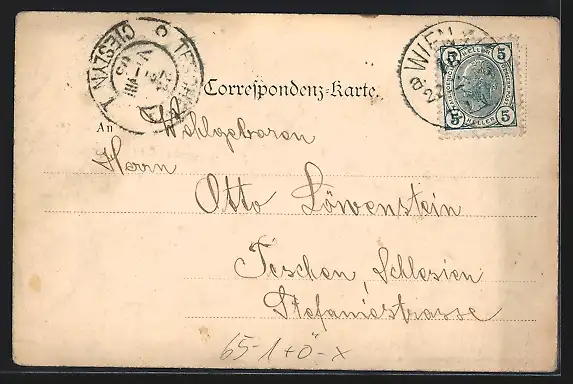 CIESZYN
TESCHEN
WIEN
5 5
5 HELLER 5
Correspondenz-Karte.
An Wohlgeboren
Herrn
Otto Löwenstein
Teschen, Schlesien
Stefaniestrasse
65-1+Ö-x